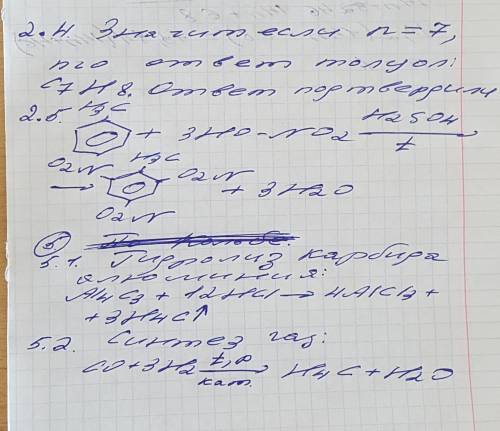 2.4. Значит если n=7,
то ответ толуол:
C7H8. Ответ подтвердили
2.5. H3C
+ 3HO-NO2 H2SO4
t
→ O2N H3C O2N + 3H2O
O2N
⑤ По Кольбе.
5.1. Гидролиз карбида
алюминия:
Al4C3 + 12HCl → 4AlCl3 +
+ 3H4C↑
5.2. Синтез газ:
CO+3H2 t,p кат. → H4C+H2O